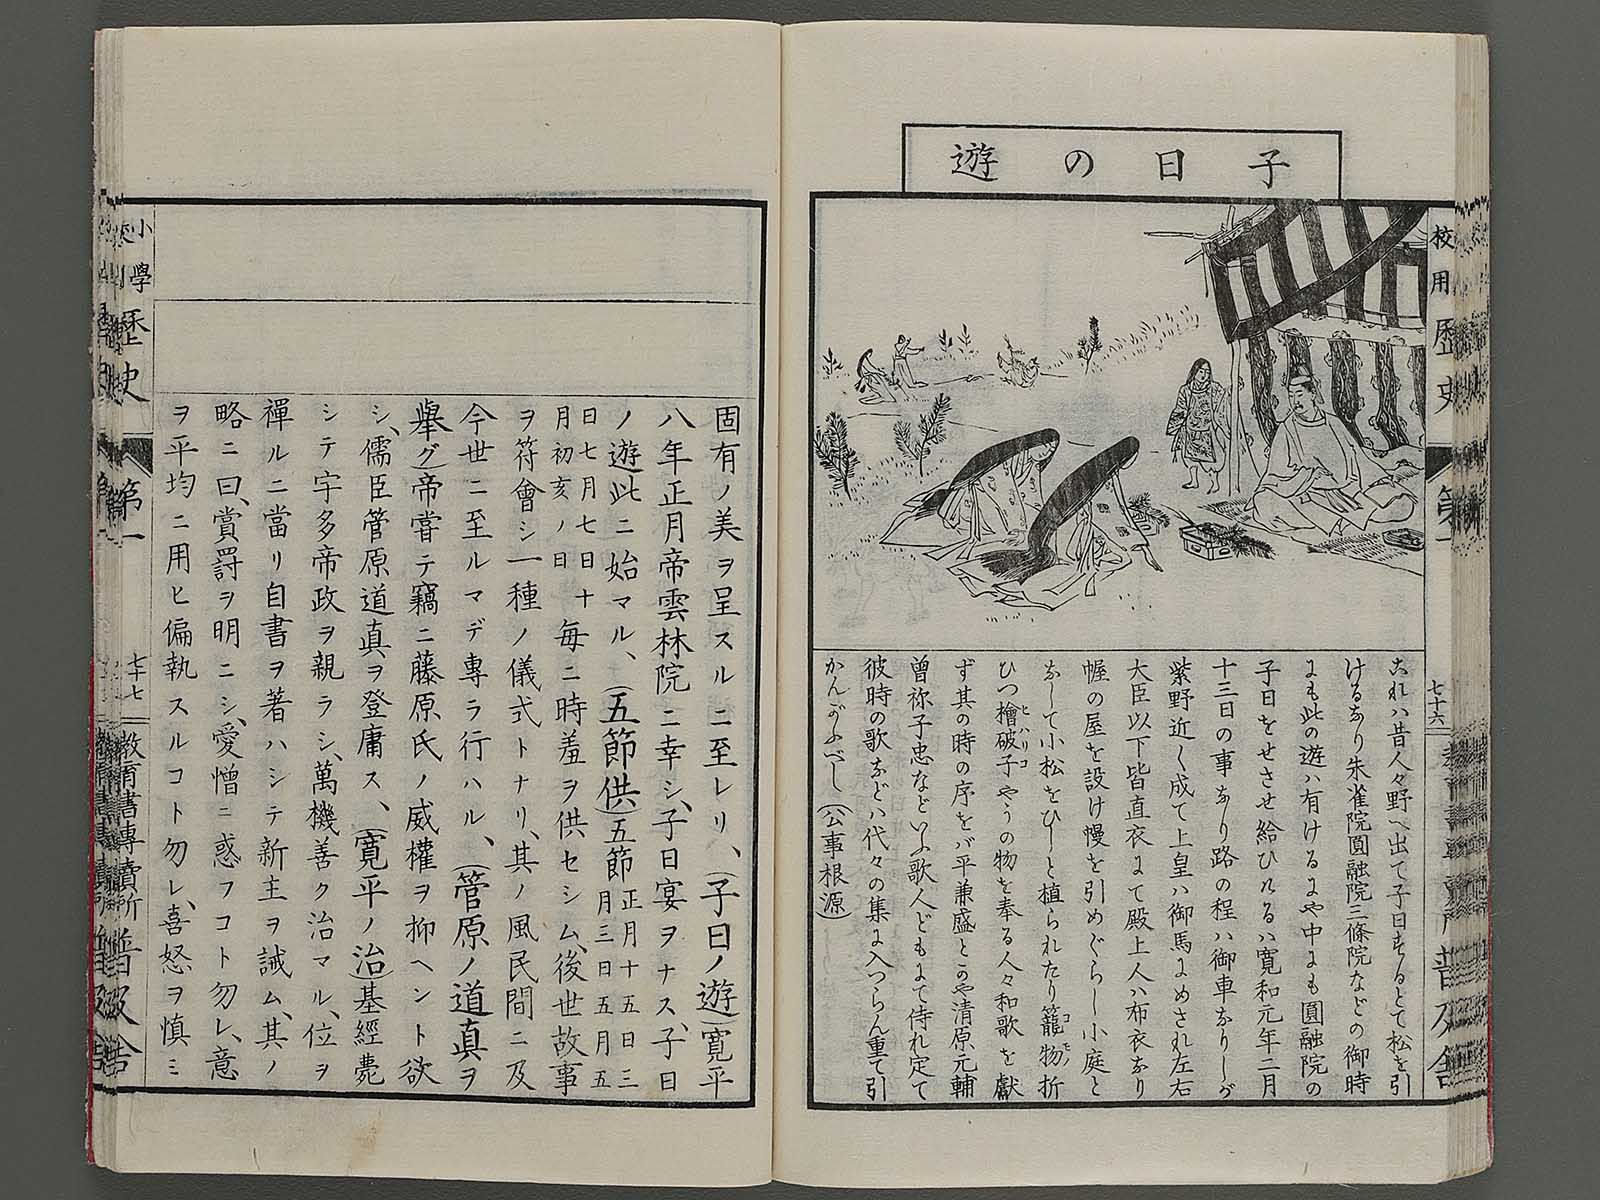 子日の遊
校用歴史
第一
七十六
これハ昔人々野へ出て子日するとて松を引
けるなり朱雀院圓融院三條院などの御時
にも此の遊ハ有けるにや中にも圓融院の
子日をせさせ給ひたるハ寛和元年二月
十三日の事なり路の程ハ御車なりしが
紫野近く成て上皇ハ御馬にめされ左右
大臣以下皆直衣にて殿上人ハ布衣なり
幄の屋を設け幔を引めぐらし小庭と
なして小松をひしと植られたり籠物折
コモノ
ひつ檜破子やうの物を奉る人々和歌を獻
ヒハリコ
ず其の時の序をバ平兼盛とかや清原元輔
曽祢子忠などいふ歌人どもまで侍れ定て
彼時の歌などハ代々の集に入つらん重て引
かんがふべし(公事根源)
固有ノ美ヲ呈スルニ至レリ、(子日ノ遊)寛平
八年正月帝雲林院ニ幸シ、子日宴ヲナス、子日
ノ遊此ニ始マル、(五節供)五節正月十五日三月三日五月五
日七月七日十月初亥ノ日毎ニ時羞ヲ供セシム、後世故事
ヲ符會シ一種ノ儀式トナリ、其ノ風民間ニ及
今世ニ至ルマデ專ラ行ハル、(菅原ノ道真ヲ
擧グ)帝嘗テ竊ニ藤原氏ノ威權ヲ抑ヘント欲
シ、儒臣菅原道真ヲ登庸ス、(寛平ノ治)基經薨
シテ宇多帝政ヲ親ラシ、萬機善ク治マル、位ヲ
禪ルニ當リ自書ヲ著ハシテ新主ヲ誡ム、其ノ
略ニ曰、賞罸ヲ明ニシ、愛憎ニ惑フコト勿レ、意
ヲ平均ニ用ヒ偏執スルコト勿レ、喜怒ヲ慎ミ
小學
歴史
第一
七十七
教育書專賣所
普及舎